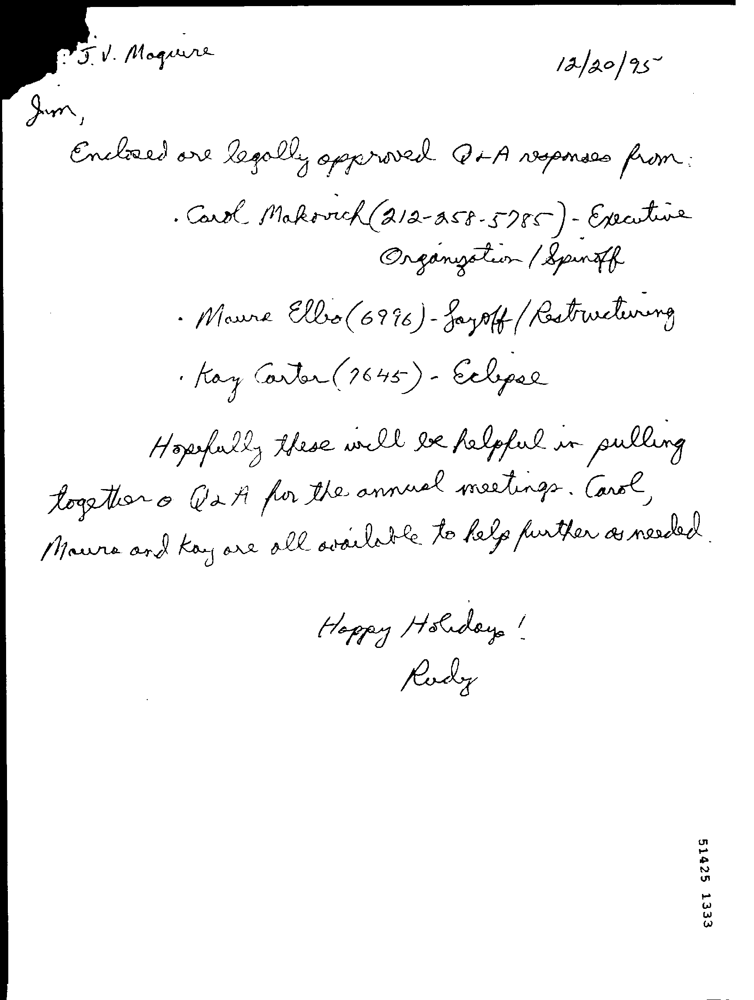 : J. V. Maguire
12/20/95
Jim,
Enclosed are legally approved Q&A responses from:
. Carol Makovich (212-258-5785) - Executive
Organization / Spinoff
. Maura Ellis (6996) - Layoff / Restructuring
. Kay Carter (7645) - Eclipse
Hopefully these will be helpful in pulling
together a Q&A for the annual meetings. Carol,
Maura and Kay are all available to help further as needed.
Happy Holidays!
Rudy
51425 1333